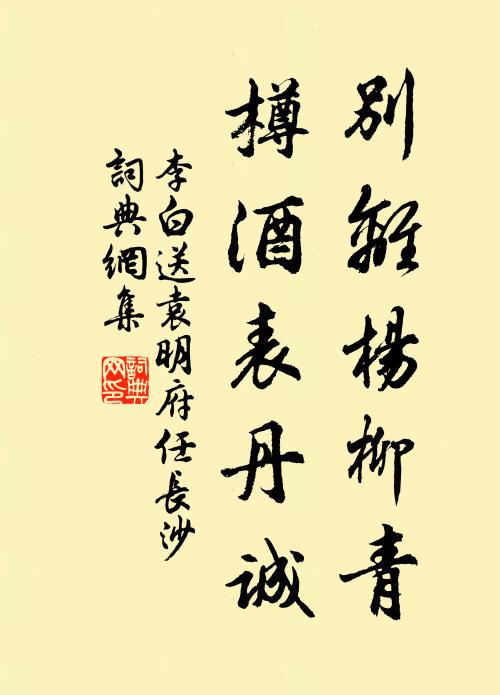 別離楊柳青
樽酒表丹誠
李白送袁明府任長沙
詞典網集
詞典
网印